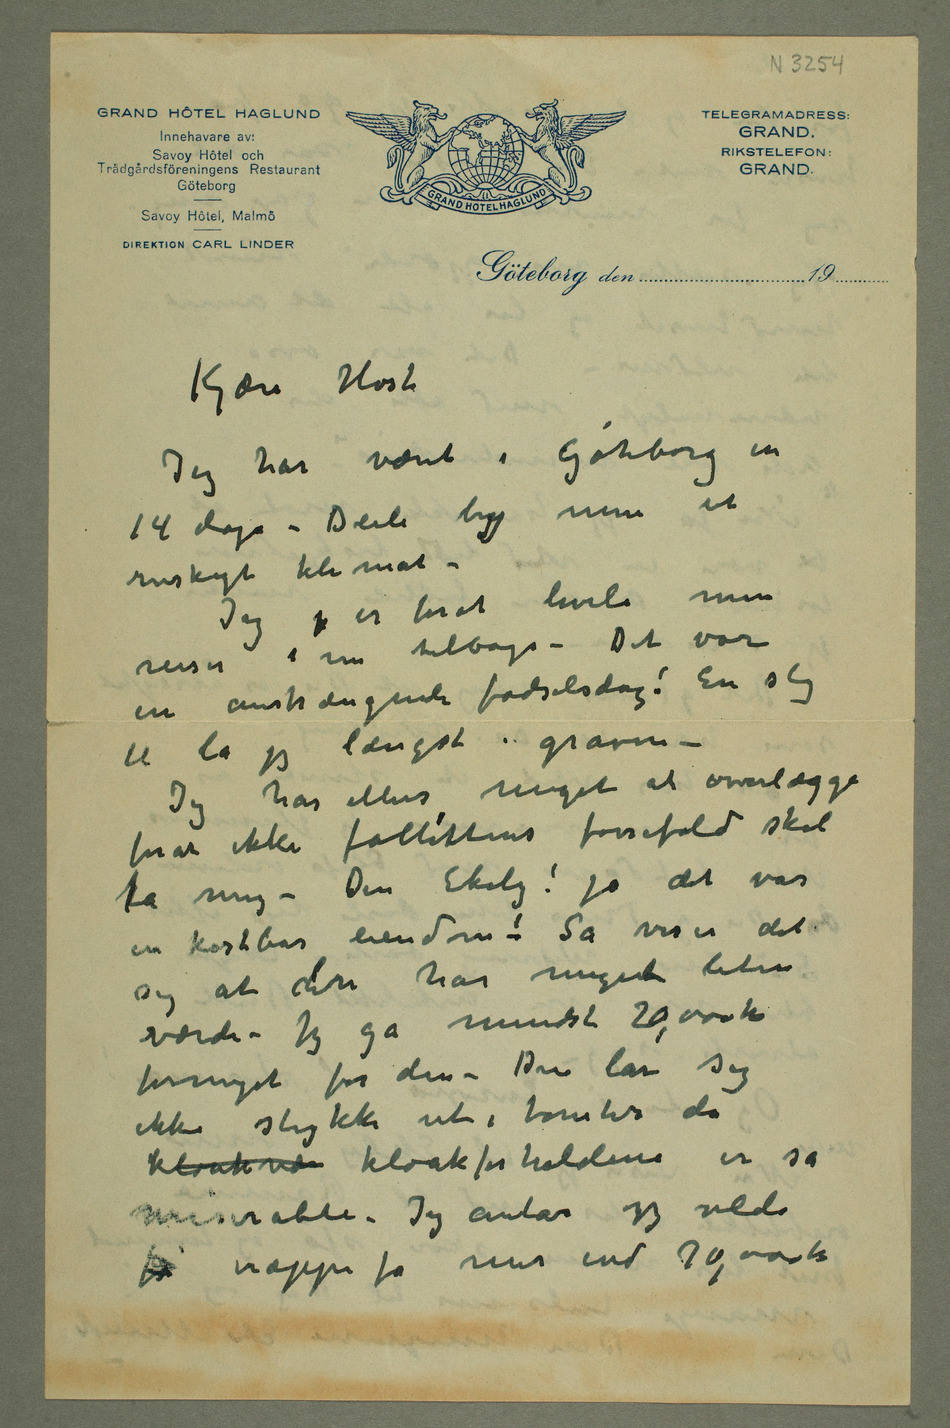 N 3254
GRAND HÔTEL HAGLUND
Innehavare av:
Savoy Hôtel och
Trädgårdsföreningens Restaurant
Göteborg
Savoy Hôtel, Malmö
DIREKTION CARL LINDER
GRAND HOTEL HAGLUND
TELEGRAMADRESS:
GRAND.
RIKSTELEFON:
GRAND.
Göteborg den 19
Kjære Høst
Jeg har været i Göteborg en
14 dage – Deili by men et
ruskigt klimat –
Jeg er forat hvile min
reiser i nu tilbage – Det var
en anstrængende fødselsdag! En slig
til la jeg længst i graven –
Jeg har ellers meget at overlægge
forat ikke fallittensforrefald skal
ta mig – Den Ekely! jo det var
en kostbar eiendom! Så viser det
sig at den har meget liten
værdi – Jeg ga mindst 20,000 k
formeget for den – Den lar sig
ikke stykke ut i tomter da
kloakforholdene er så
miserable. Jeg antar jeg vilde
neppe få mer end 70,000 k